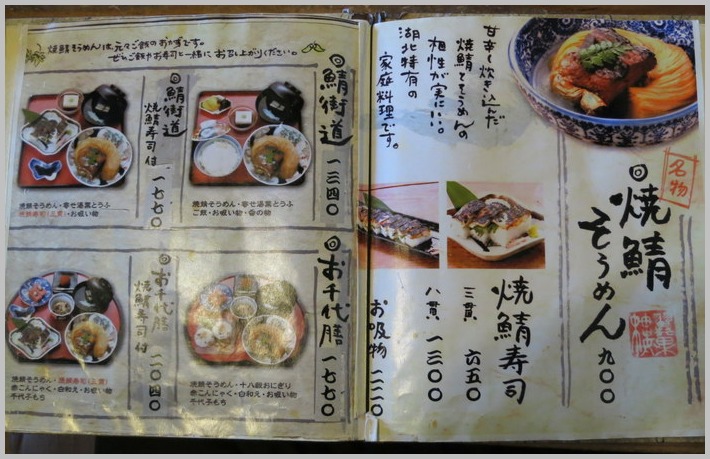 名物
焼鯖そうめん 九〇〇
甘辛く炊き込んだ
焼鯖とそうめんの
相性が実にいい。
湖北特有の
家庭料理です。
焼鯖寿司
三貫 六五〇
八貫 一三〇〇
お吸物
焼鯖そうめんは、元々ご飯のおかずです。
ぜひご飯やお寿司と一緒にお召し上がりください。
鯖街道 一三四〇
焼鯖そうめん・寄せ湯葉とうふ
ご飯・お吸い物・香の物
鯖街道
焼鯖寿司付 一七七〇
焼鯖そうめん・寄せ湯葉とうふ
焼鯖寿司(三貫)・お吸い物
お千代膳 一七七〇
焼鯖そうめん・十八穀おにぎり
赤こんにゃく・白和え・お吸い物
千代子もち
お千代膳
焼鯖寿司付 二〇四〇
焼鯖そうめん・焼鯖寿司(三貫)
赤こんにゃく・白和え・お吸い物
千代子もち